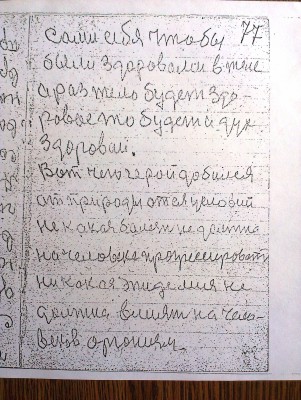 сами себя чтобы 77
были здоровами в теле
а раз тело будет здо-
ровае то будет и дух
здоровай.
Вот чего герой добился
от природы этея условий
не какая болезн не должна
на человека прогрессировать
ни какая эпидемия не
должна влият на чело-
веков